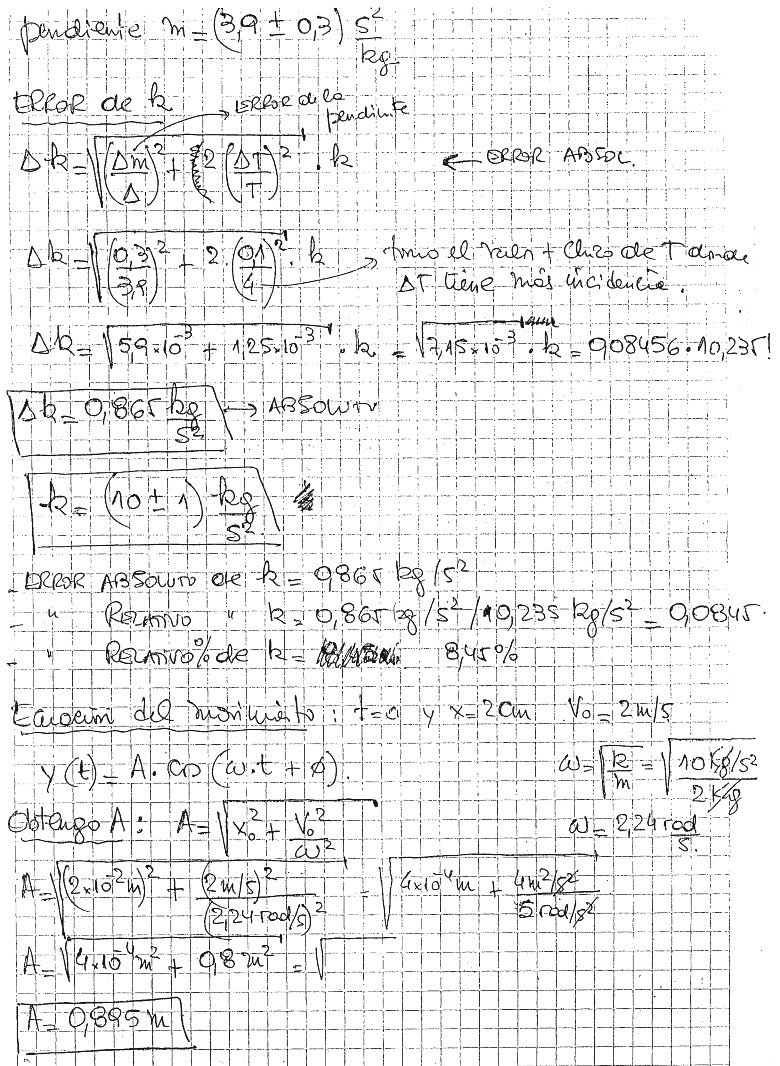 pendiente m = (3,9 ± 0,3) s²/kg
ERROR de k
→ ERROR de la pendiente
Δk = √((Δm/Δ)² + 2 (ΔT/T)²) · k ← ERROR ABSOL.
Δk = √((0,3/3,9)² + 2·(0,1/4)²) · k → tomo el valor + chico de T donde
ΔT tiene más incidencia.
Δk = √(5,9×10⁻³ + 1,25×10⁻³) · k = √(7,15×10⁻³) · k = 0,08456 · 10,235
Δk = 0,865 kg/s² → ABSOLUTO
k = (10 ± 1) kg/s²
- ERROR ABSOLUTO de k = 0,865 kg/s²
- " RELATIVO " k = 0,865 kg/s² / 10,235 kg/s² = 0,0845.
- " RELATIVO % de k = 8,45%
Ecuación del movimiento : t=0 y x=2cm V₀ = 2m/s
y(t) = A · cos (ω.t + φ). ω = √(k/m) = √(10 kg/s² / 2 kg)
Obtengo A : A = √(x₀² + V₀²/ω²) ω = 2,24 rad/s.
A = √((2×10⁻² m)² + (2m/s)²/(2,24 rad/s)²) = √(4×10⁻⁴ m + 4m²/s²/5 rad/s²)
A = √(4×10⁻⁴ m² + 0,8 m²) = √
A = 0,895 m